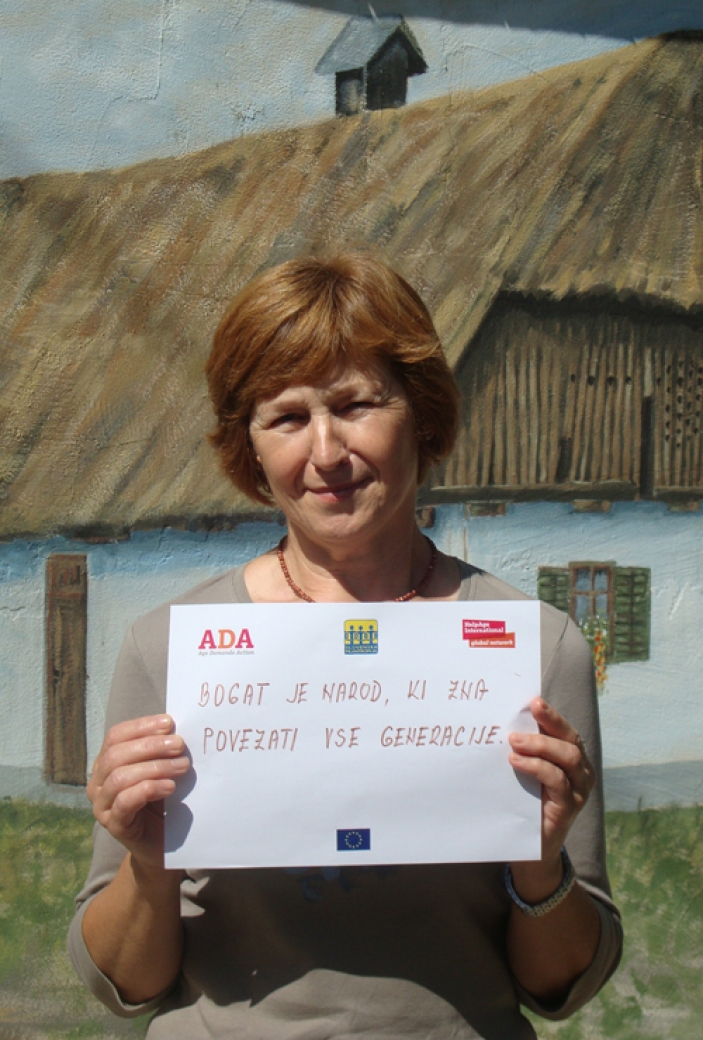 ADA
Age Demands Action
HelpAge
International
global network
BOGAT JE NAROD, KI ZNA
POVEZATI VSE GENERACIJE.